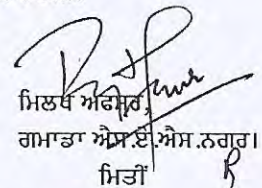 ਮਿਲਖ ਅਫਸਰ,
ਗਮਾਡਾ ਐਸ.ਏ.ਐਸ.ਨਗਰ।
ਮਿਤੀ